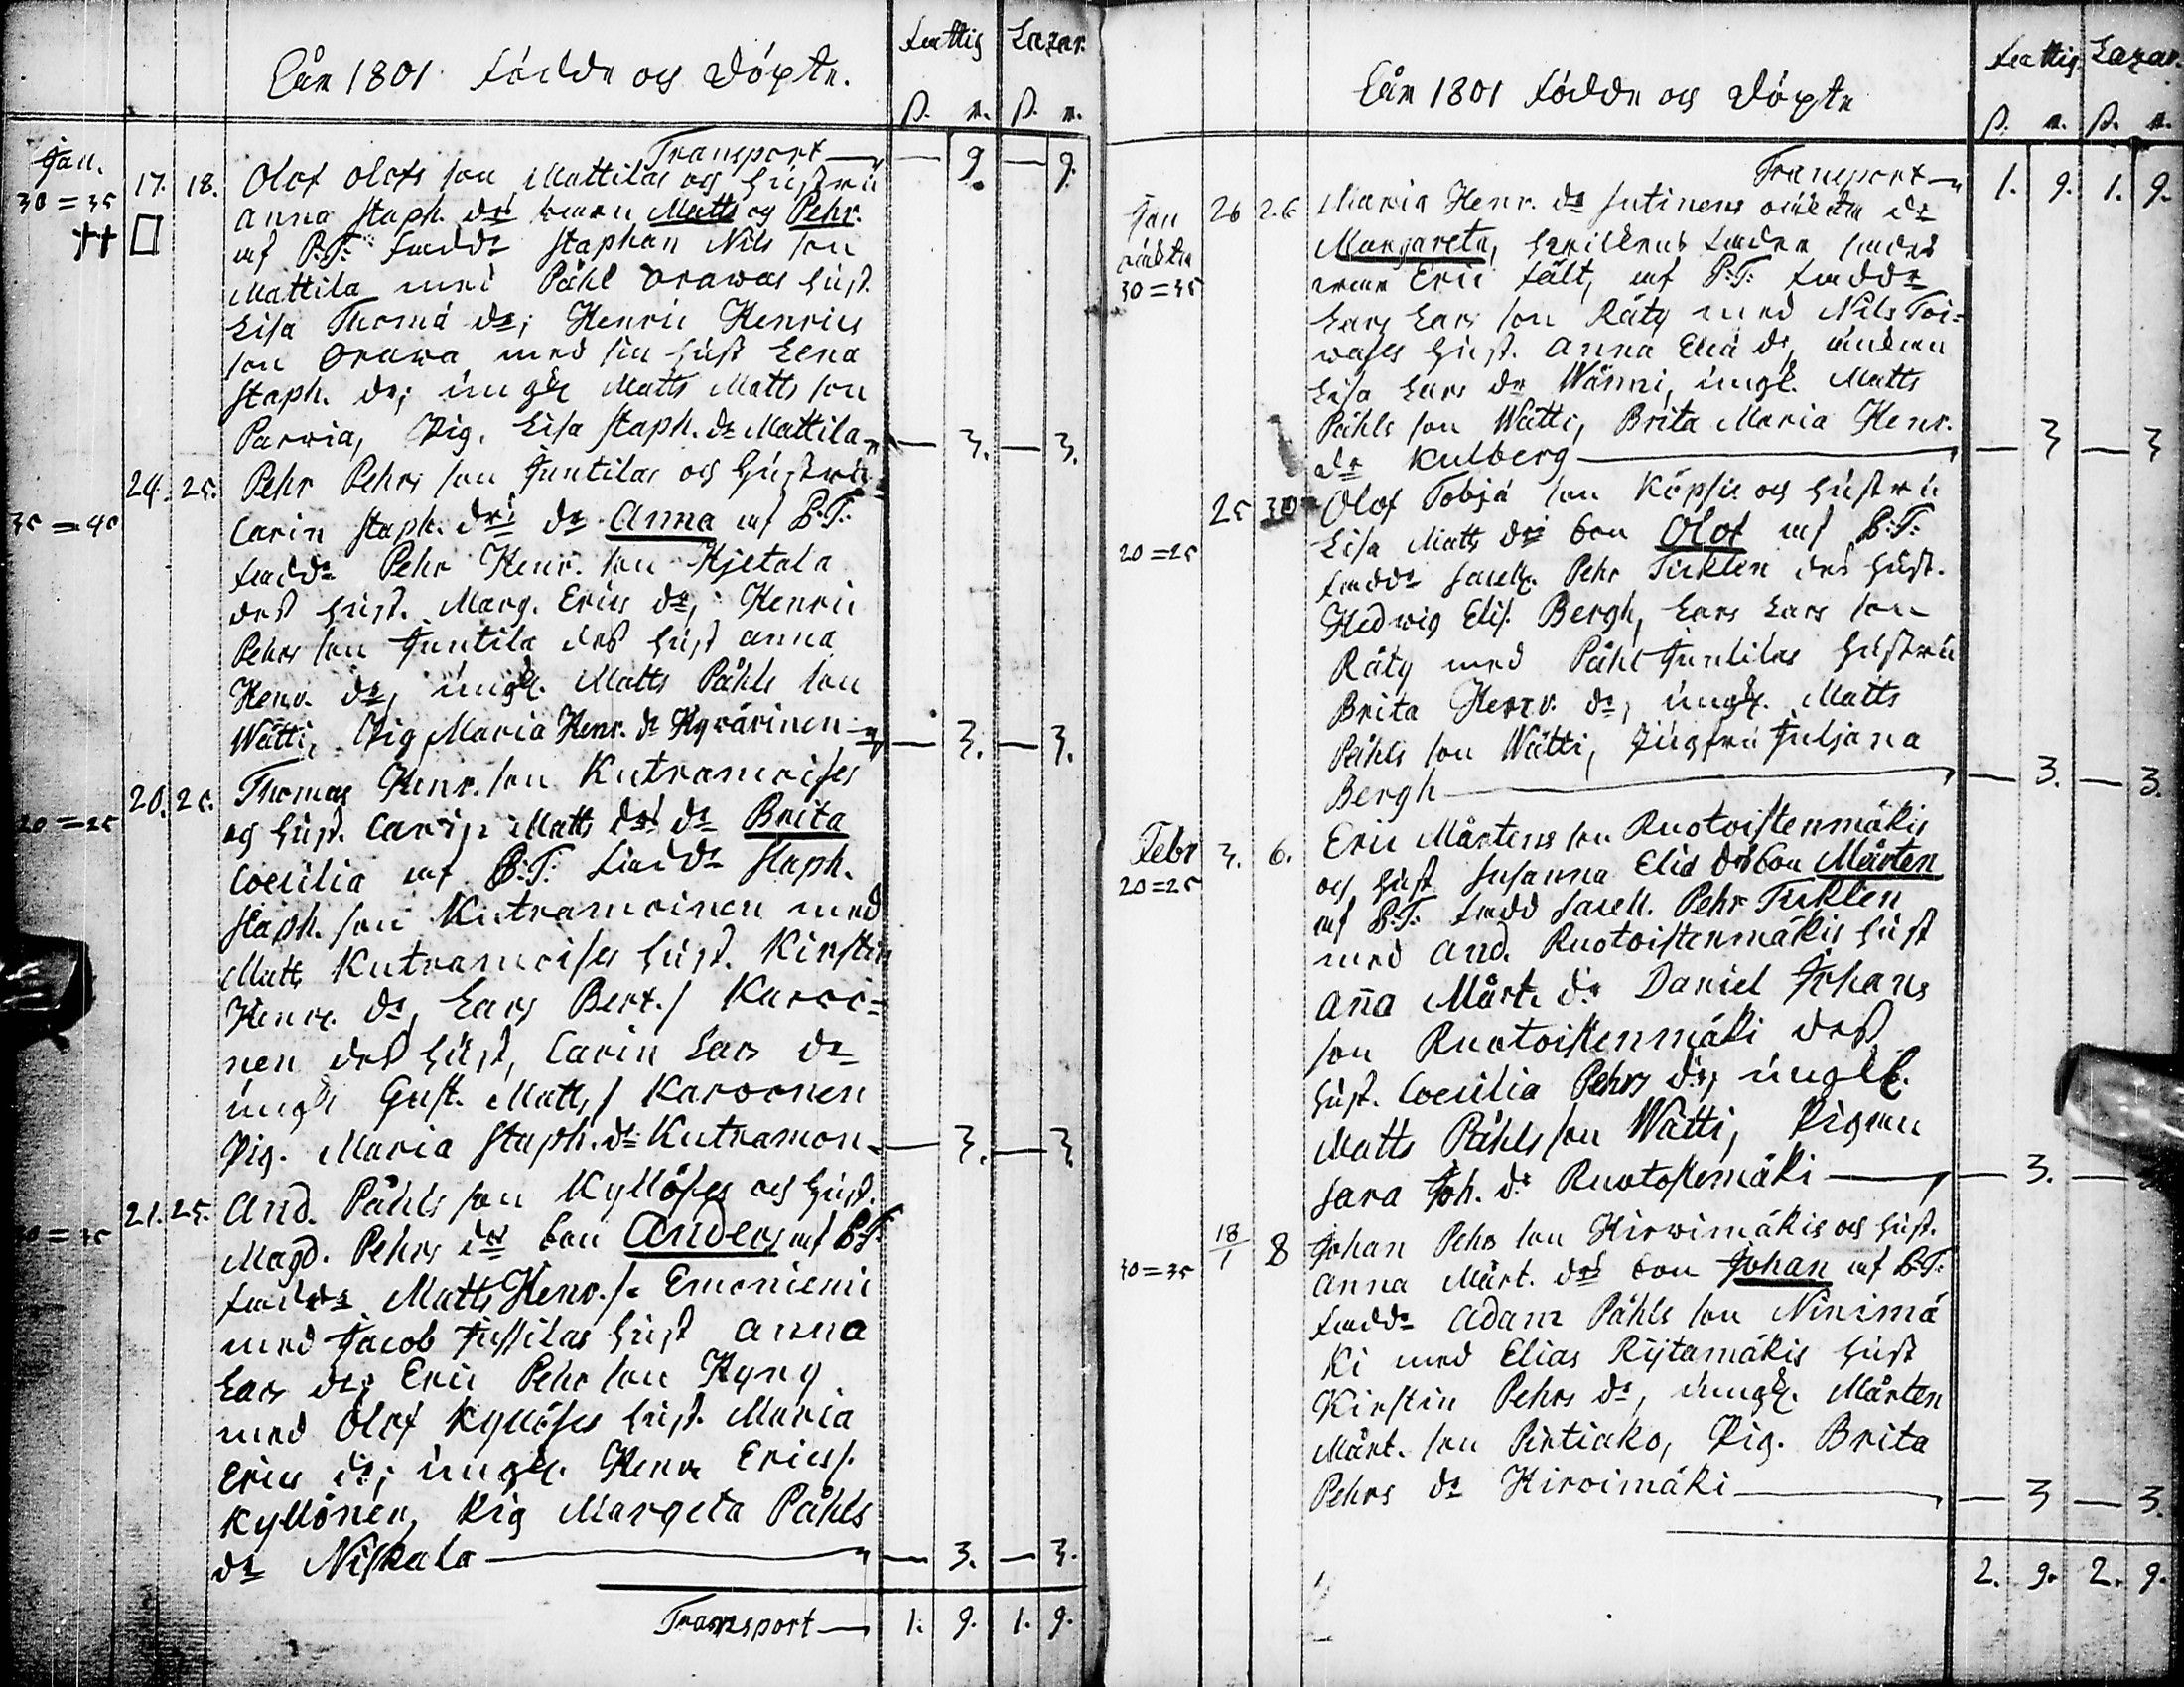 Åhr 1801 Födde och Döpte.
Fattig Lazar.
ß. r. ß. r.
Transport — 9. — 9.
Jan. 17. 18. Olof Olofs son Mattilas och hustru
30=35 Anna Staph. dr: barn Matts och Pehr.
++ □ af B.T. Fadd: Staphan Nils son
Mattila med Påhl Orawas hust.
Lisa Thomä dr; Henric Henrics
son Orawa med sin hust Lena
Staph. dr; ungk Matts Matts son
Parvia, Pig. Lisa Staph. dr Mattila — 3. — 3.
24. 25. Pehr Pehrs son Juntilas och hustru
35=40 Carin Staph. dri dr Anna af B.T.
Fadd: Pehr Henr. son Hjetala
dess hust. Marg. Erics dr; Henric
Pehrs son Juntila dess hust Anna
Henr. dr, ungk. Matts Påhls son
Wätti, Pig Maria Henr. dr Hyvärinen — 3. — 3.
20. 25. Thomas Henr. son Kutramoises
20=25 och hust. Carin Matts dri dr Brita
Coecilia af B.T. Fadd: Staph.
Staph. son Kutramoinen med
Matts Kutramoises hust. Kirstin
Henr. dr, Lars Bert. s Karvo-
nen dess hust, Carin Lars dr
ungk Gust. Matts s Karvonen
Pig. Maria Staph. dr Kutramon. — 3. — 3.
21. 25. And. Påhls son Kyllöses och hust.
Magd. Pehrs dri son Anders af B.T.
Fadd: Matts Henr. s. Emoniemi
med Jacob Jussilas hust Anna
Lars dr; Eric Pehr son Kyng
med Olof Kyllöses hust. Maria
Erics dr; ungk. Henr Erics s.
Kyllönen, Pig Margeta Påhls
dr Niskala — 3. — 3.
Transport — 1. 9. 1. 9.
Åhr 1801 Födde och Döpte
Fattig. Lazar.
ß. r. ß. r.
Transport — 1. 9. 1. 9.
Jan 26 26 Maria Henr. dr Sutinens oäkta dr
oäkta Margareta, hvilkens fader säges
30=35 vara Eric Fält, af B.T. Fadd:
Lars Lars son Räty med Nils Toi-
wases hust. Anna Eliä dr, änkan
Lisa Lars dr Wänni, ungk. Matts
Påhls son Wätti, Brita Maria Henr.
dr Kulberg — 3 — 3
25 30 Olof Tobjä son Köpsis och hustru
20=25 Lisa Matts dri son Olof af B.T.
Fadd: Sacell. Pehr Ticklen des hust.
Hedwig Elis. Bergh, Lars Lars son
Räty med Påhl Juntilas hustru
Brita Henr. dr, ungk. Matts
Påhls son Wätti, Jungfru Juljana
Bergh — 3. — 3.
Febr 3. 6. Eric Mårtens son Ruotoistenmäkis
20=25 och hust Susanna Eliä dri son Mårten
af B.T. Fadd Sacell. Pehr Ticklen
med And. Ruotoistenmäkis hust
Anna Mårt. dr Daniel Johans
son Ruotoistenmäki dess
hust. Coecilia Pehrs dr, ungk.
Matts Påhls son Wätti, Pigan
Sara Joh. dr Ruotostemäki — 3. —
18/1 8 Johan Pehrs son Hirwimäkis och hust.
30=35 Anna Mårt. dri son Johan af B.T.
Fadd: Adam Påhls son Ninimä
ki med Elias Rijtamäkis hust
Kirstin Pehrs dr, ungk. Mårten
Mårt. son Pirtiako, Pig. Brita
Pehrs dr Hirvimäki — 3 — 3.
2. 9. 2. 9.